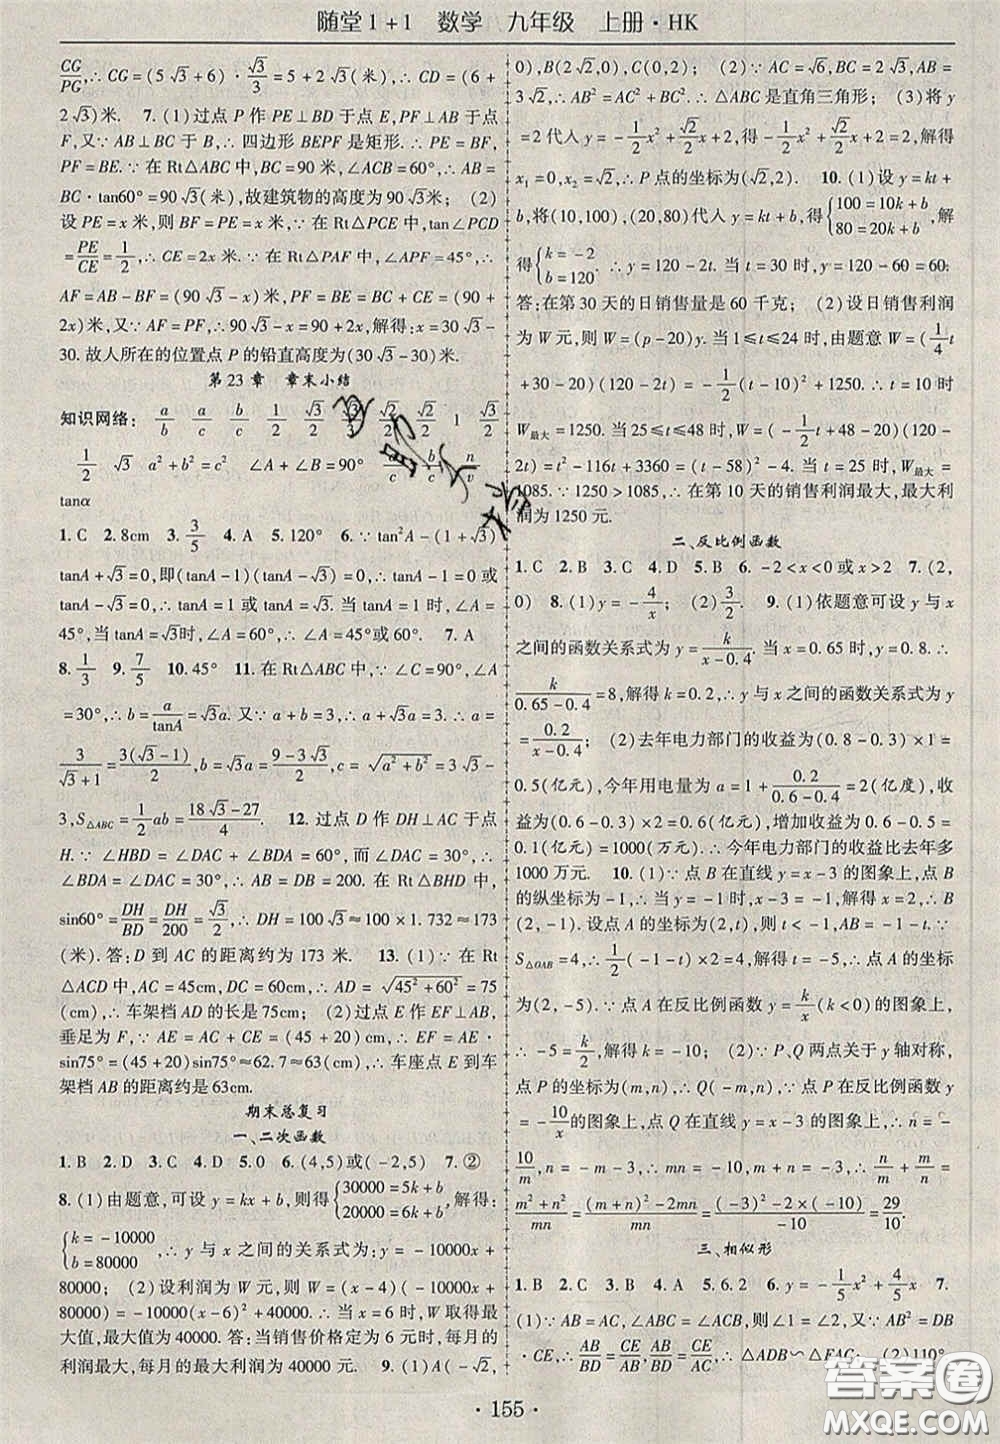 随堂1+1 数学 九年级 上册·HK
CG/PG,∴CG=(5√3+6)·√3/3=5+2√3(米),∴CD=(6+
2√3)米. 7.(1)过点P作PE⊥BD于点E,PF⊥AB于点
F,又∵AB⊥BC于B,∴四边形BEPF是矩形.∴PE=BF,
PF=BE.∵在Rt△ABC中,BC=90米,∠ACB=60°,∴AB=
BC·tan60°=90√3(米),故建筑物的高度为90√3米;(2)
设PE=x米,则BF=PE=x米,∵在Rt△PCE中,tan∠PCD
=PE/CE=1/2,∴CE=2x米.∵在Rt△PAF中,∠APF=45°,∴
AF=AB-BF=(90√3-x)米,PF=BE=BC+CE=(90+
2x)米,又∵AF=PF,∴90√3-x=90+2x,解得:x=30√3-
30.故人所在的位置点P的铅直高度为(30√3-30)米.
第23章 章末小结
知识网络: a/b a/c a/c b/c 1/2 √3/2 √3/3 √2/2 √2/2 1 √3/2
1/2 √3 a²+b²=c² ∠A+∠B=90° a/c b/c n/v
tanα
1.C 2.8cm 3.3/5 4.A 5.120° 6.∵tan²A-(1+√3)
tanA+√3=0,即(tanA-1)(tanA-√3)=0,∴tanA-1=0或
tanA-√3=0,∴tanA=1或tanA=√3.当tanA=1时,∠A=
45°,当tanA=√3时,∠A=60°,∴∠A=45°或60°. 7.A
8.1/3 9.7/5 10.45° 11.在Rt△ABC中,∵∠C=90°,∠A
=30°,∴b=a/tanA=√3a.又∵a+b=3,∴a+√3a=3.∴a=
3/(√3+1)=3(√3-1)/2,b=√3a=(9-3√3)/2,c=√(a²+b²)=3√3-
3,S△ABC=1/2ab=(18√3-27)/4. 12.过点D作DH⊥AC于点
H.∵∠HBD=∠DAC+∠BDA=60°,而∠DAC=30°,∴
∠BDA=∠DAC=30°,∴AB=DB=200.在Rt△BHD中,
sin60°=DH/BD=DH/200=√3/2,∴DH=100√3≈100×1.732≈173
(米).答:D到AC的距离约为173米. 13.(1)∵在Rt
△ACD中,AC=45cm,CD=60cm,∴AD=√(45²+60²)=75
(cm),∴车架档AD的长是75cm;(2)过点E作EF⊥AB,
垂足为F,∵AE=AC+CE=(45+20)cm,∴EF=AE·
sin75°=(45+20)sin75°≈62.7≈63(cm),∴车座点E到车
架档AB的距离约是63cm.
期末总复习
一、二次函数
1.B 2.D 3.C 4.D 5.0 6.(4,5)或(-2,5) 7.②
8.(1)由题意,可设y=kx+b,则得{30000=5k+b 20000=6k+b,解得:
{k=-10000 b=80000,∴y与x之间的关系式为:y=-10000x+
80000;(2)设利润为W元,则W=(x-4)(-10000x+
80000)=-10000(x-6)²+40000.∴当x=6时,W取得最
大值,最大值为40000.答:当销售价格定为6元时,每月的
利润最大,每月的最大利润为40000元. 9.(1)A(-√2,
0),B(2√2,0),C(0,2);(2)∵AC=√6,BC=2√3,AB=
3√2,∴AB²=AC²+BC²,∴△ABC是直角三角形;(3)将y
=2代入y=-1/2x²+√2/2x+2,得-1/2x²+√2/2x+2=2,解得
x₁=0,x₂=√2,∴P点的坐标为(√2,2). 10.(1)设y=kt+
b,将(10,100),(20,80)代入y=kt+b,得{100=10k+b 80=20k+b,解
得{k=-2 b=120.∴y=120-2t.当t=30时,y=120-60=60.
答:在第30天的日销售量是60千克;(2)设日销售利润
为W元,则W=(p-20)y.当1≤t≤24时,由题意W=(1/4
t+30-20)(120-2t)=-1/2(t-10)²+1250.∴t=10时
W最大=1250.当25≤t≤48时,W=(-1/2t+48-20)(120-
2t)=t²-116t+3360=(t-58)²-4.当t=25时,W最大=
1085.∵1250>1085,∴在第10天的销售利润最大,最大利
润为1250元.
二、反比例函数
1.C 2.B 3.C 4.D 5.B 6.-2<x<0或x>2 7.(2,
0) 8.(1)y=-4/x;(2)3/2. 9.(1)依题意可设y与x
之间的函数关系式为y=k/(x-0.4).当x=0.65时,y=0.8.∴
k/(0.65-0.4)=8,解得k=0.2,∴y与x之间的函数关系式为y
=0.2/(x-0.4);(2)去年电力部门的收益为(0.8-0.3)×1=
0.5(亿元),今年用电量为a=1+0.2/(0.6-0.4)=2(亿度),收
益为(0.6-0.3)×2=0.6(亿元),增加收益为0.6-0.5=
0.1(亿元)=1000(万元).∴今年电力部门的收益比去年多
1000万元. 10.(1)∵点B在直线y=x-3的图象上,点B
的纵坐标为-1,∴当y=-1时,x-3=-1,解得x=2,∴B
(2,-1).设点A的坐标为(2,t),则t<-1,AB=-1-t.∵
S△OAB=4,∴1/2(-1-t)×2=4,解得t=-5,∴点A的坐标
为(2,-5).∵点A在反比例函数y=k/x(k<0)的图象上,
∴-5=k/2,解得k=-10;(2)∵P、Q两点关于y轴对称,
点P的坐标为(m,n),∴Q(-m,n),∵点P在反比例函数y
=-10/x的图象上,点Q在直线y=x-3的图象上,∴n=-
10/m,n=-m-3,∴mn=-10,m+n=-3,∴n/m+m/n=
(m²+n²)/mn=((m+n)²-2mn)/mn=((-3)²-2×(-10))/-10=-29/10.
三、相似形
1.B 2.C 3.B 4.A 5.6.2 6.y=-1/5x²+4/5x 7.
(1)∵AB=AC,∠ABC=∠ACB,∴∠ABD=∠ACE,又∵AB²=DB
·CE,∴AB/BD=CE/AB=CE/AC,即AB/BD=CE/AC.∴△ADB∽△EAC;(2)110°
·155·
答案圈
MXQE.COM